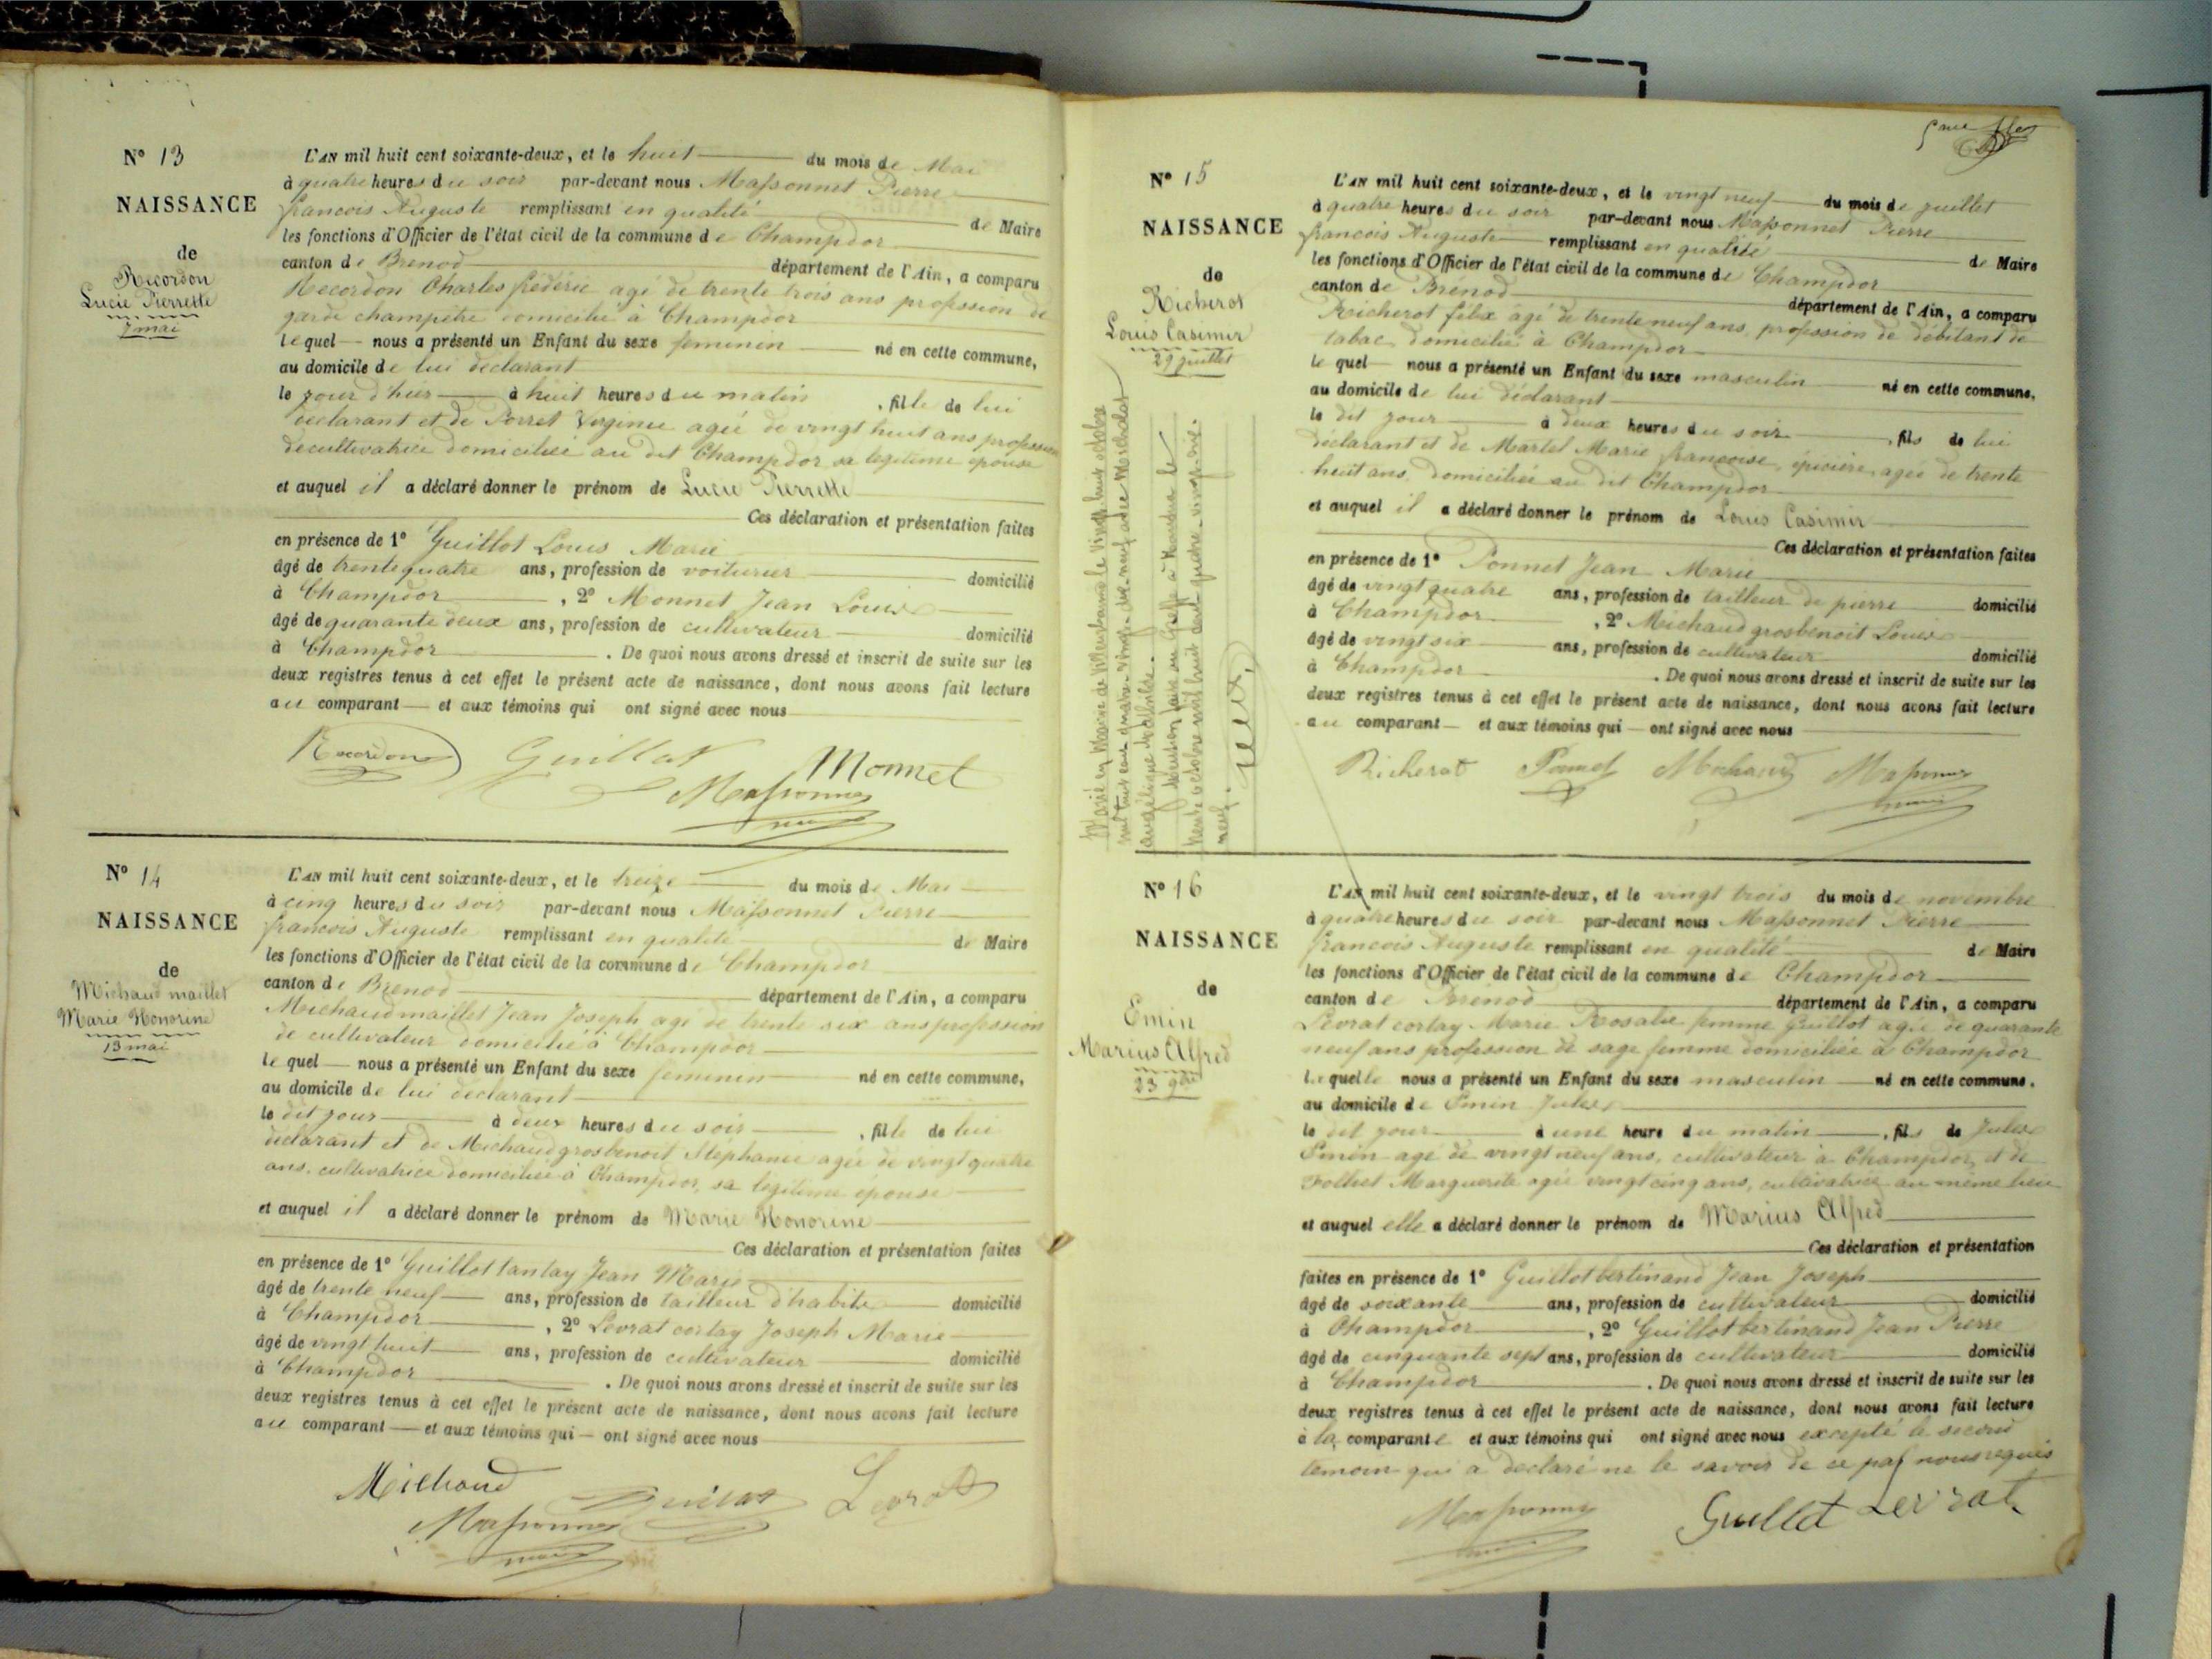 N° 13
NAISSANCE
de
Recordon
Lucie Pierrette
7 mai
L'AN mil huit cent soixante-deux, et le huit du mois de Mai
à quatre heures du soir par-devant nous Massonnet Pierre
francois Auguste remplissant en qualité de Maire
les fonctions d'Officier de l'état civil de la commune de Champdor
canton de Brenod département de l'Ain, a comparu
Recordon Charles frédéric agé de trente trois ans profession de
garde champêtre domicilié à Champdor
lequel nous a présenté un Enfant du sexe feminin né en cette commune,
au domicile de lui declarant
le jour d'hier à huit heures du matin , fille de lui
declarant et de Porret Virginie agée de vingt huit ans profession
de cultivatrice domiciliée au dit Champdor sa legitime épouse
et auquel il a déclaré donner le prénom de Lucie Pierrette
Ces déclaration et présentation faites
en présence de 1° Guillot Louis Marie
âgé de trente quatre ans, profession de voiturier domicilié
à Champdor , 2° Monnet Jean Louis
âgé de quarante deux ans, profession de cultivateur domicilié
à Champdor . De quoi nous avons dressé et inscrit de suite sur les
deux registres tenus à cet effet le présent acte de naissance, dont nous avons fait lecture
au comparant et aux témoins qui ont signé avec nous
Recordon Guillot Monnet
Massonnet
N° 14
NAISSANCE
de
Michaud maillet
Marie Honorine
13 mai
L'AN mil huit cent soixante-deux, et le treize du mois de Mai
à cinq heures du soir par-devant nous Massonnet Pierre
francois Auguste remplissant en qualité de Maire
les fonctions d'Officier de l'état civil de la commune de Champdor
canton de Brenod département de l'Ain, a comparu
Michaudmaillet Jean Joseph agé de trente six ans profession
de cultivateur domicilié à Champdor
lequel nous a présenté un Enfant du sexe feminin né en cette commune,
au domicile de lui declarant
le dit jour à deux heures du soir , fille de lui
déclarant et de Michaudgrosbenoit Stéphanie agée de vingt quatre
ans, cultivatrice domiciliée à Champdor, sa légitime épouse
et auquel il a déclaré donner le prénom de Marie Honorine
Ces déclaration et présentation faites
en présence de 1° Guillot tantay Jean Marie
âgé de trente neuf ans, profession de tailleur d'habits domicilié
à Champdor , 2° Levrat cortay Joseph Marie
âgé de vingt huit ans, profession de cultivateur domicilié
à Champdor . De quoi nous avons dressé et inscrit de suite sur les
deux registres tenus à cet effet le présent acte de naissance, dont nous avons fait lecture
au comparant et aux témoins qui ont signé avec nous
Michaud Guillot Levrat
Massonnet
N° 15
NAISSANCE
de
Richerot
Louis Casimir
29 juillet
Marié en Mairie de Villeurbanne le vingt huit octobre
mil huit cent quatre-vingt-dix-neuf avec Michelot
L'AN mil huit cent soixante-deux, et le vingt neuf du mois de juillet
à quatre heures du soir par-devant nous Massonnet Pierre
francois Auguste remplissant en qualité de Maire
les fonctions d'Officier de l'état civil de la commune de Champdor
canton de Brénod département de l'Ain, a comparu
Richerot félix âgé de trente neuf ans, profession de débitant de
tabac domicilié à Champdor
lequel nous a présenté un Enfant du sexe masculin né en cette commune,
au domicile de lui déclarant
le dit jour à deux heures du soir , fils de lui
déclarant et de Martel Marie francoise, épicière, agée de trente
huit ans, domiciliée au dit Champdor
et auquel il a déclaré donner le prénom de Louis Casimir
Ces déclaration et présentation faites
en présence de 1° Ponnet Jean Marie
âgé de vingt quatre ans, profession de tailleur de pierre domicilié
à Champdor , 2° Michaud grosbenoit Louis
âgé de vingt six ans, profession de cultivateur domicilié
à Champdor . De quoi nous avons dressé et inscrit de suite sur les
deux registres tenus à cet effet le présent acte de naissance, dont nous avons fait lecture
au comparant et aux témoins qui ont signé avec nous
Richerot Ponnet Michaud Massonnet
N° 16
NAISSANCE
de
Emin
Marius Alfred
23 9bre
L'AN mil huit cent soixante-deux, et le vingt trois du mois de novembre
à quatre heures du soir par-devant nous Massonnet Pierre
francois Auguste remplissant en qualité de Maire
les fonctions d'Officier de l'état civil de la commune de Champdor
canton de Brénod département de l'Ain, a comparu
Levrat cortay Marie Rosalie femme Guillot agée de quarante
neuf ans profession de sage femme domiciliée à Champdor
laquelle nous a présenté un Enfant du sexe masculin né en cette commune,
au domicile de Emin Jules
le dit jour à une heure du matin , fils de Jules
Emin agé de vingt neuf ans, cultivateur à Champdor, et de
Marguerite agée vingt cinq ans, cultivatrice au même lieu
et auquel elle a déclaré donner le prénom de Marius Alfred
Ces déclaration et présentation
faites en présence de 1° Guillot bertinand Jean Joseph
âgé de soixante ans, profession de cultivateur domicilié
à Champdor , 2° Guillot bertinand Jean Pierre
âgé de cinquante sept ans, profession de cultivateur domicilié
à Champdor . De quoi nous avons dressé et inscrit de suite sur les
deux registres tenus à cet effet le présent acte de naissance, dont nous avons fait lecture
à la comparante et aux témoins qui ont signé avec nous excepté le second
temoin qui a declaré ne le savoir de ce par nous requis
Massonnet Guillot Levrat